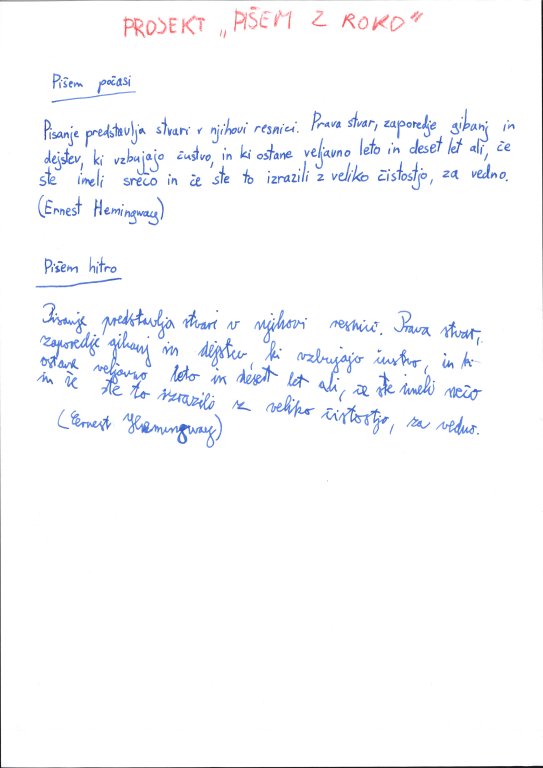 PROJEKT „PIŠEM Z ROKO"
Pišem počasi
Pisanje predstavlja stvari v njihovi resnici. Prava stvar, zaporedje gibanj in
dejstev, ki vzbujajo čustvo, in ki ostane veljavno leto in deset let ali, če
ste imeli srečo in če ste to izrazili z veliko čistostjo, za vedno.
(Ernest Hemingway)
Pišem hitro
Pisanje predstavlja stvari v njihovi resnici. Prava stvar,
zaporedje gibanj in dejstev, ki vzbujajo čustvo, in ki
ostane veljavno leto in deset let ali, če ste imeli srečo
in če ste to izrazili z veliko čistostjo, za vedno.
(Ernest Hemingway)